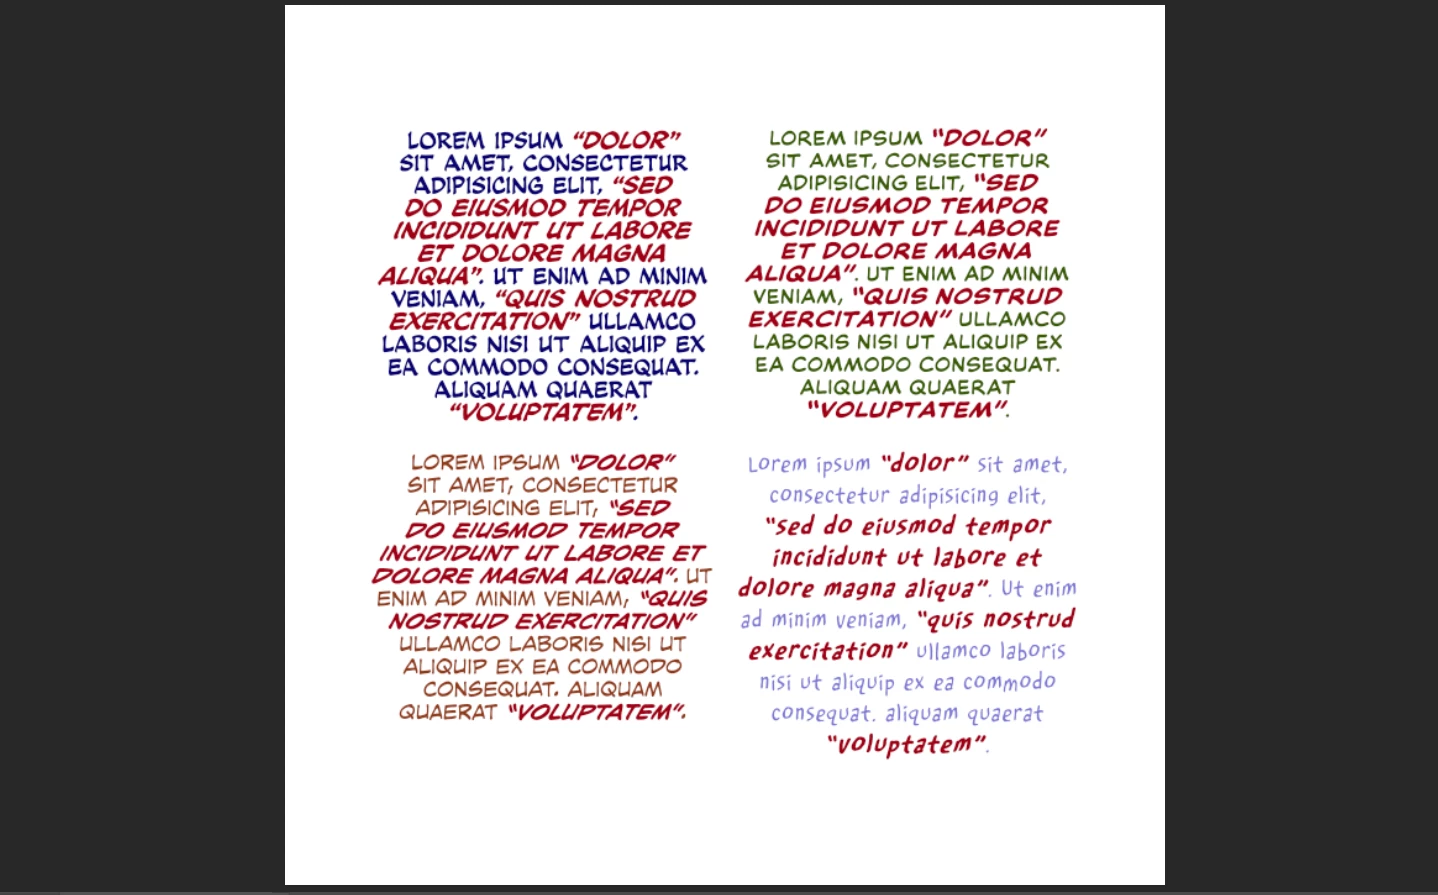 LOREM IPSUM “DOLOR”
SIT AMET, CONSECTETUR
ADIPISICING ELIT, “SED
DO EIUSMOD TEMPOR
INCIDIDUNT UT LABORE
ET DOLORE MAGNA
ALIQUA”. UT ENIM AD MINIM
VENIAM, “QUIS NOSTRUD
EXERCITATION” ULLAMCO
LABORIS NISI UT ALIQUIP EX
EA COMMODO CONSEQUAT.
ALIQUAM QUAERAT
“VOLUPTATEM”.
LOREM IPSUM “DOLOR”
SIT AMET, CONSECTETUR
ADIPISICING ELIT, “SED
DO EIUSMOD TEMPOR
INCIDIDUNT UT LABORE
ET DOLORE MAGNA
ALIQUA”. UT ENIM AD MINIM
VENIAM, “QUIS NOSTRUD
EXERCITATION” ULLAMCO
LABORIS NISI UT ALIQUIP EX
EA COMMODO CONSEQUAT.
ALIQUAM QUAERAT
“VOLUPTATEM”.
LOREM IPSUM “DOLOR”
SIT AMET, CONSECTETUR
ADIPISICING ELIT, “SED
DO EIUSMOD TEMPOR
INCIDIDUNT UT LABORE ET
DOLORE MAGNA ALIQUA”. UT
ENIM AD MINIM VENIAM, “QUIS
NOSTRUD EXERCITATION”
ULLAMCO LABORIS NISI UT
ALIQUIP EX EA COMMODO
CONSEQUAT. ALIQUAM
QUAERAT “VOLUPTATEM”.
Lorem ipsum “dolor” sit amet,
consectetur adipisicing elit,
“sed do eiusmod tempor
incididunt ut labore et
dolore magna aliqua”. Ut enim
ad minim veniam, “quis nostrud
exercitation” ullamco laboris
nisi ut aliquip ex ea commodo
consequat. aliquam quaerat
“voluptatem”.